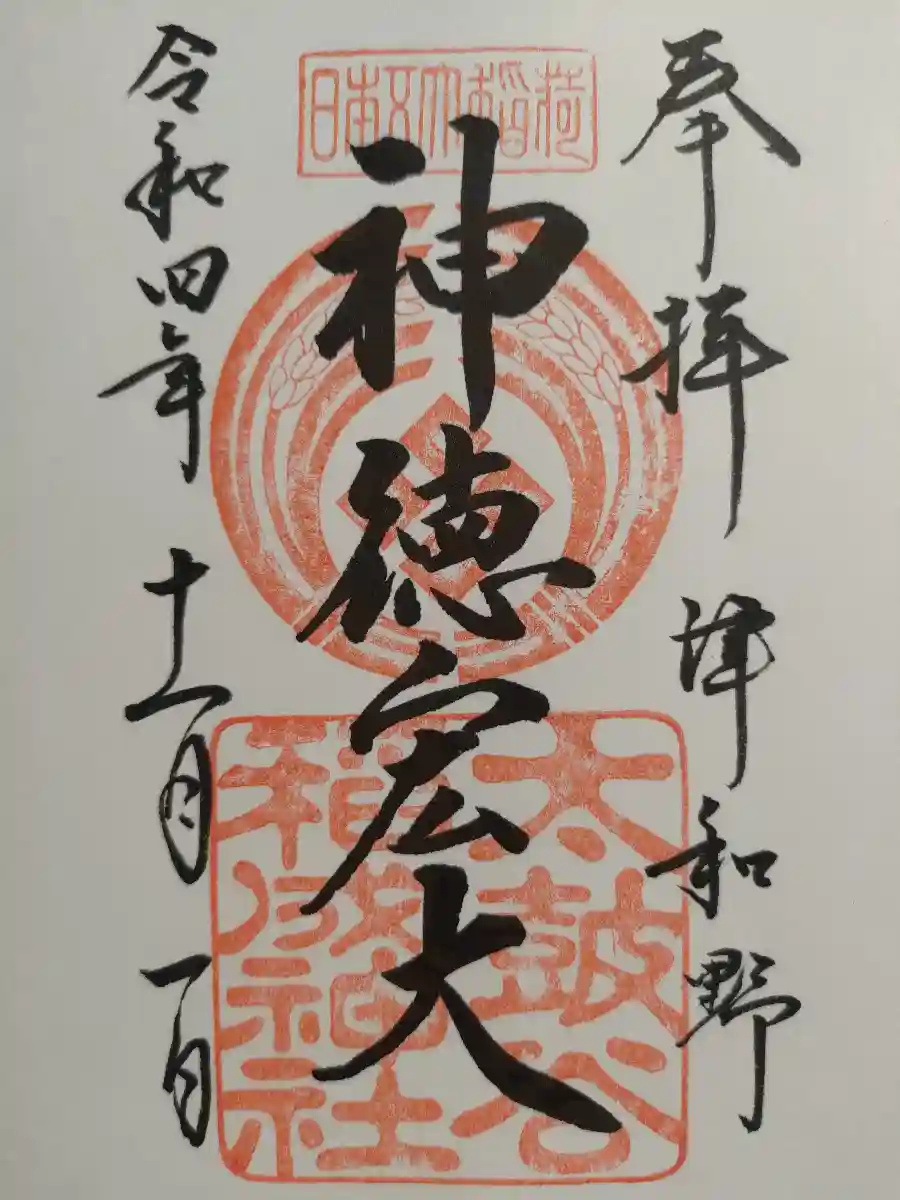 奉拝 津和野
日本五大稲荷
神徳宏大
太鼓谷
稲成神社
令和四年 十一月 一日